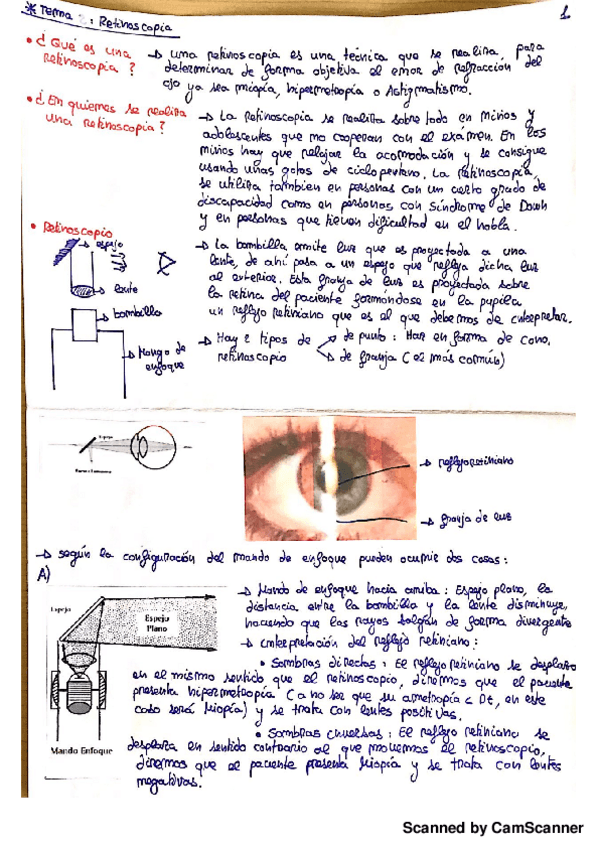 * Tema 2: Retinoscopia
1
• ¿Qué es una
retinoscopia?
→ una retinoscopia es una técnica que se realiza para
determinar de forma objetiva el error de refracción del
ojo ya sea miopía, hipermetropía o Astigmatismo.
• ¿En quienes se realiza
una retinoscopia?
→ La retinoscopia se realiza sobre todo en niños y
adolescentes que no cooperan con el exámen. En los
niños hay que relajar la acomodación y se consigue
usando unas gotas de ciclopentano. La retinoscopia,
se utiliza tambien en personas con un cierto grado de
discapacidad como en personas con Síndrome de Down
y en personas que tienen dificultad en el habla.
• Retinoscopio
→ espejo
→ lente
→ bombilla
→ Mango de
enfoque
→ La bombilla emite luz que es proyectada a una
lente, de ahí pasa a un espejo que refleja dicha luz
al exterior. Esta franja de luz es proyectada sobre
la retina del paciente formándose en la pupila
un reflejo retiniano que es el que debemos de interpretar.
→ Hay 2 tipos de
retinoscopio
→ de punto: Haz en forma de cono.
→ de franja (el más común)
Espejo
→ reflejo retiniano
→ franja de luz
→ según la configuración del mando de enfoque pueden ocurrir dos cosas:
A)
Espejo
Espejo
Plano
Mando Enfoque
→ Mando de enfoque hacia arriba: Espejo plano, la
distancia entre la bombilla y la lente disminuye,
haciendo que los rayos salgan de forma divergente
→ interpretación del reflejo retiniano:
• Sombras directas: El reflejo retiniano se desplaza
en el mismo sentido que el retinoscopio, diremos que el paciente
presenta hipermetropía (a no ser que su ametropía < Dt, en este
caso será Miopía) y se trata con lentes positivas.
• Sombras inversas: El reflejo retiniano se
desplaza en sentido contrario al que movemos el retinoscopio,
diremos que el paciente presenta Miopía y se trata con lentes
negativas.
Scanned by CamScanner